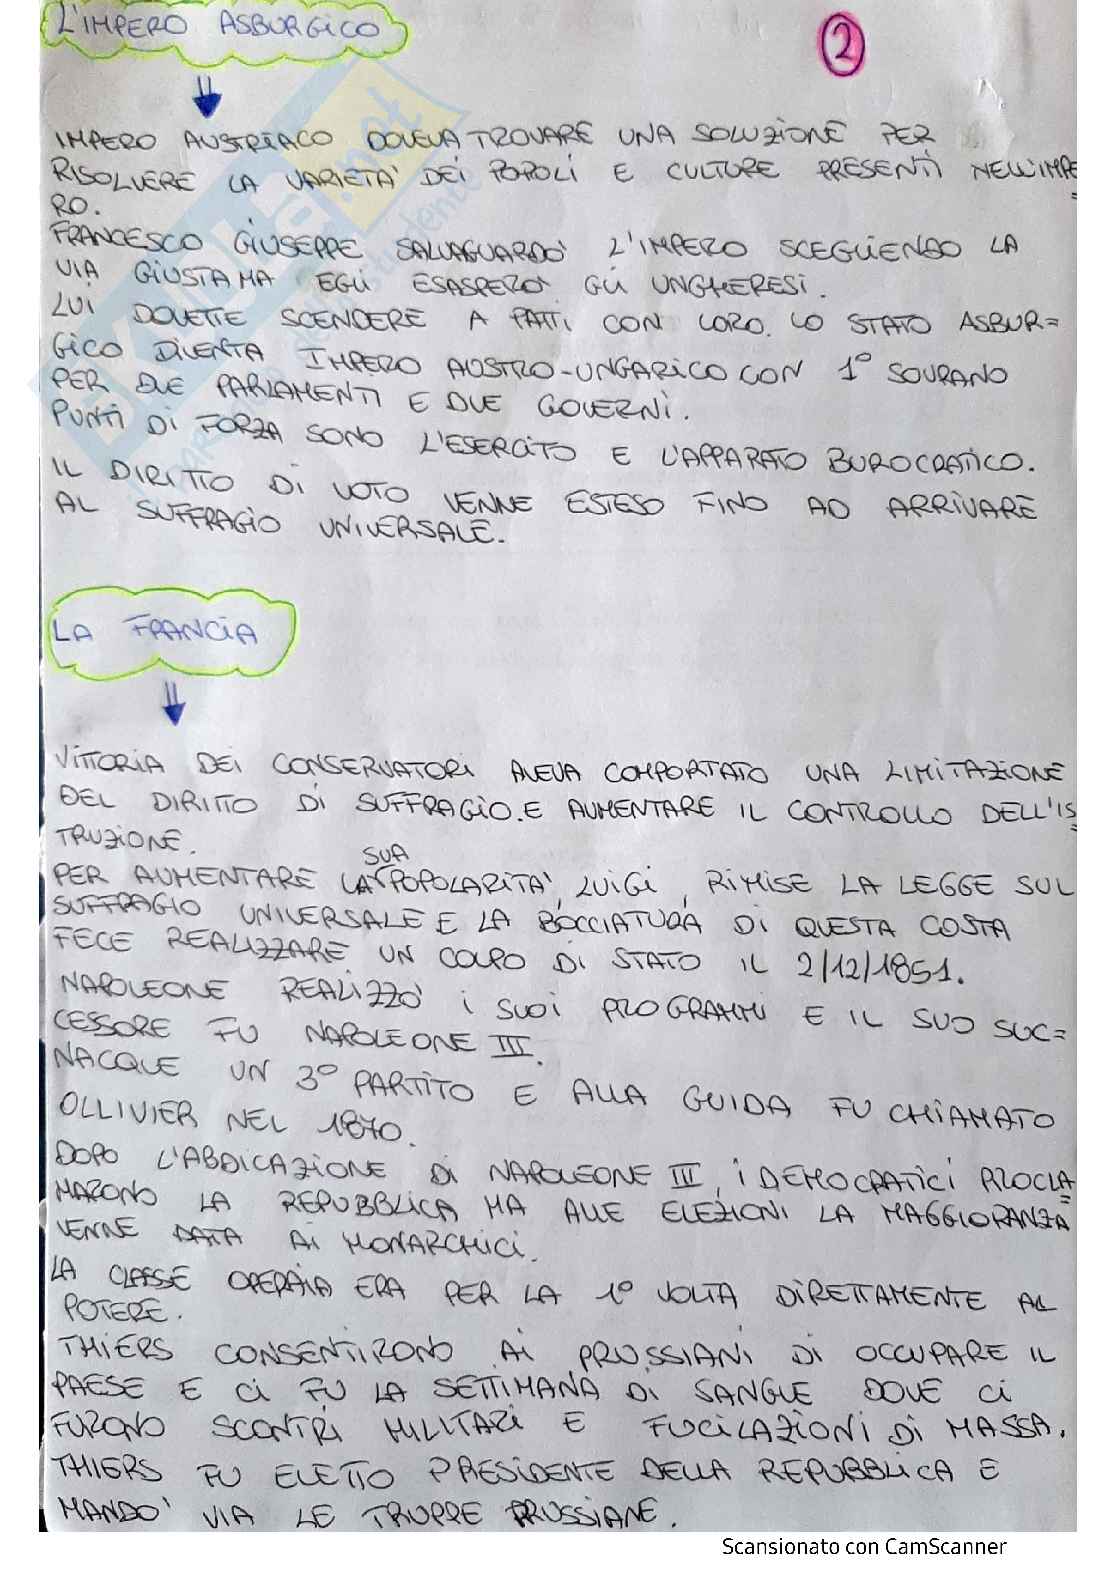 L'IMPERO ASBURGICO
2
IMPERO AUSTRIACO DOVEVA TROVARE UNA SOLUZIONE PER
RISOLVERE LA VARIETA' DEI POPOLI E CULTURE PRESENTI NELL'IMPE=
RO.
FRANCESCO GIUSEPPE SALVAGUARDO' L'IMPERO SCEGLIENDO LA
VIA GIUSTA MA EGLI ESASPERO' GLI UNGHERESI.
LUI DOVETTE SCENDERE A PATTI CON LORO. LO STATO ASBUR=
GICO DIVENTA IMPERO AUSTRO-UNGARICO CON 1° SOVRANO
PER DUE PARLAMENTI E DUE GOVERNI.
PUNTI DI FORZA SONO L'ESERCITO E L'APPARATO BUROCRATICO.
IL DIRITTO DI VOTO VENNE ESTESO FINO AD ARRIVARE
AL SUFFRAGIO UNIVERSALE.
LA FRANCIA
VITTORIA DEI CONSERVATORI AVEVA COMPORTATO UNA LIMITAZIONE
DEL DIRITTO DI SUFFRAGIO. E AUMENTARE IL CONTROLLO DELL'IS=
TRUZIONE.
PER AUMENTARE LA SUA POPOLARITA', LUIGI, RIMISE LA LEGGE SUL
SUFFRAGIO UNIVERSALE E LA BOCCIATURA DI QUESTA COSTA
FECE REALIZZARE UN COLPO DI STATO IL 2/12/1851.
NAPOLEONE REALIZZO' I SUOI PROGRAMMI E IL SUO SUC=
CESSORE FU NAPOLEONE III.
NACQUE UN 3° PARTITO E ALLA GUIDA FU CHIAMATO
OLLIVIER NEL 1870.
DOPO L'ABDICAZIONE DI NAPOLEONE III, I DEMOCRATICI PROCLA=
MARONO LA REPUBBLICA, MA ALLE ELEZIONI LA MAGGIORANZA
VENNE DATA AI MONARCHICI.
LA CLASSE OPERAIA ERA PER LA 1° VOLTA DIRETTAMENTE AL
POTERE.
THIERS CONSENTIRONO AI PRUSSIANI DI OCCUPARE IL
PAESE E CI FU LA SETTIMANA DI SANGUE DOVE CI
FURONO SCONTRI MILITARI E FUCILAZIONI DI MASSA.
THIERS FU ELETTO PRESIDENTE DELLA REPUBBLICA E
MANDO' VIA LE TRUPPE PRUSSIANE.
Scansionato con CamScanner